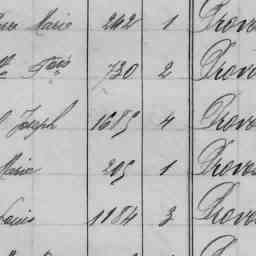 Marie 242 1 Prov
730 2 Prov
Joseph 1685 4 Prov
Marie 205 1 Prov
Louis 1184 3 Prov